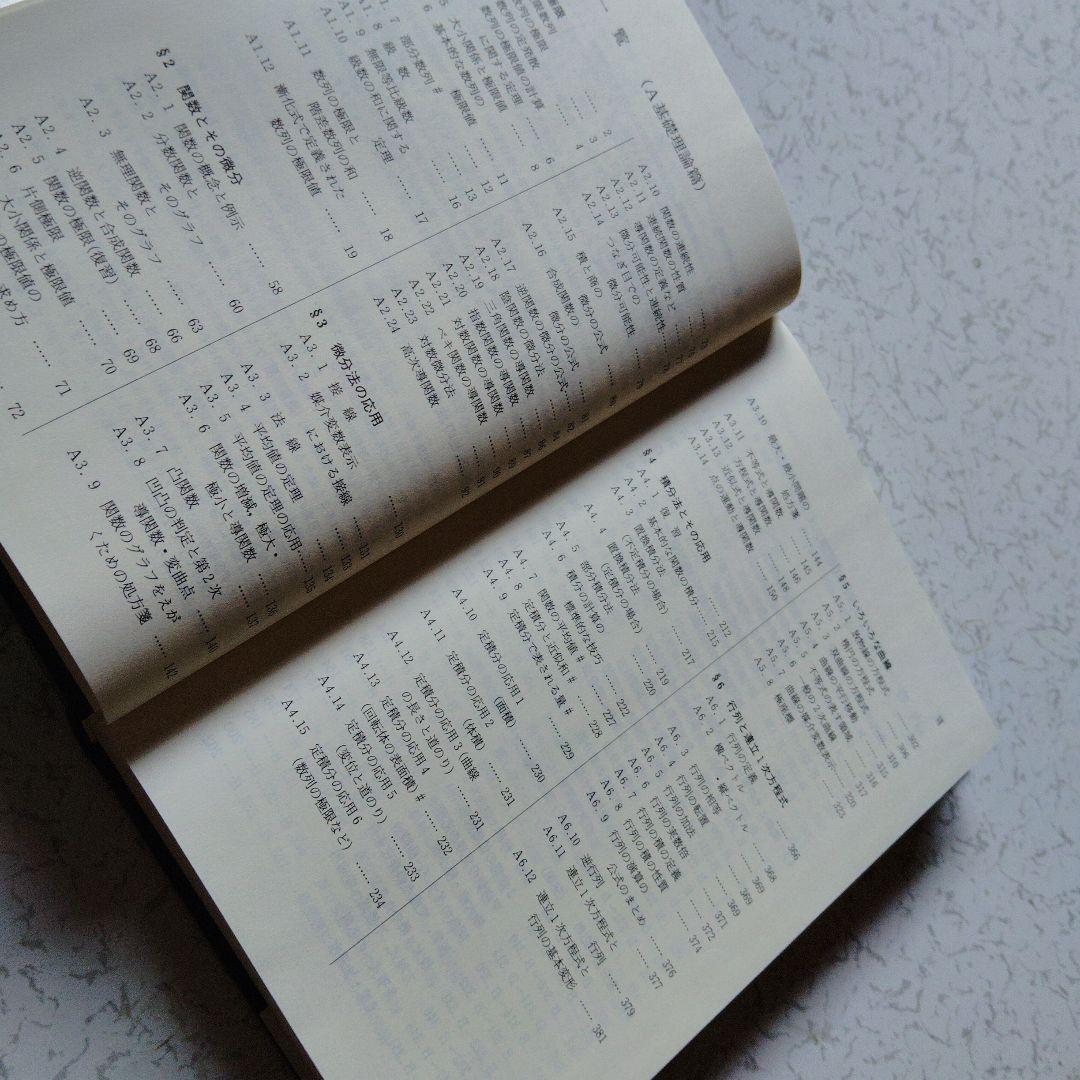 覧
(A 基礎理論篇)
数列の極限
数列の定発散
数列の極限値の計算 …… 2
に関する定理 …… 3
大小関係と極限値 …… 4
6 基本的な数列の
極限値 …… 6
7 部分数列 # …… 8
A1. 8 級 数 …… 11
A1. 9 無限等比級数 …… 12
A1.10 級数の和に関する
定理 …… 13
A1.11 数列の極限と
階差数列の和 …… 18
A1.12 漸化式で定義された
数列の極限値 …… 19
§2 関数とその微分
A2. 1 関数の概念と例示 …… 58
A2. 2 分数関数と
そのグラフ …… 60
A2. 3 無理関数と
そのグラフ …… 63
A2. 4 逆関数と合成関数 …… 66
A2. 5 関数の極限(復習) …… 68
6 片側極限 …… 69
大小関係と極限値 …… 70
の極限値の
求め方 …… 71
72
A2.10 関数の連続性
A2.11 連続関数の性質
A2.12 導関数の定義など
A2.13 微分可能性と連続性
A2.14 つなぎ目での
微分可能性
A2.15 積と商の
微分の公式
A2.16 合成関数の
微分の公式
A2.17 逆関数の微分の公式
A2.18 陰関数の微分法
A2.19 三角関数の導関数
A2.20 指数関数の導関数
A2.21 対数関数の導関数
A2.22 ベキ関数の導関数
A2.23 対数微分法
A2.24 高次導関数 …… 92
§3 微分法の応用
A3. 1 接 線 …… 130
A3. 2 媒介変数表示
における接線 …… 131
A3. 3 法 線 …… 133
A3. 4 平均値の定理 …… 134
A3. 5 平均値の定理の応用 …… 135
A3. 6 関数の増減, 極大・
極小と導関数 …… 136
A3. 7 凸関数 …… 137
A3. 8 凹凸の判定と第2次
導関数・変曲点 …… 140
A3. 9 関数のグラフをえが
くための処方箋 …… 142
A3.10 最大・最小問題の
処方箋 …… 144
A3.11 不等式と導関数 …… 145
A3.12 方程式と導関数 …… 146
A3.13 近似式と導関数 …… 148
A3.14 点の運動と導関数 …… 150
§4 積分法とその応用
A4. 1 復 習 …… 212
A4. 2 基本的な関数の積分 …… 215
A4. 3 置換積分法
(不定積分の場合) …… 217
A4. 4 置換積分法
(定積分の場合) …… 219
A4. 5 部分積分法 …… 220
A4. 6 積分の計算の
標準的な技巧 …… 222
A4. 7 関数の平均値 # …… 227
A4. 8 定積分と近似和 # …… 228
A4. 9 定積分で表される量 # …… 229
A4.10 定積分の応用 1
(面積) …… 230
A4.11 定積分の応用 2
(体積) …… 231
A4.12 定積分の応用 3 (曲線
の長さと道のり) …… 231
A4.13 定積分の応用 4
(回転体の表面積) # …… 232
A4.14 定積分の応用 5
(変位と道のり) …… 233
A4.15 定積分の応用 6
(数列の極限など) …… 234
§5 いろいろな曲線
A5. 1 放物線の方程式 …… 302
A5. 2 楕円の方程式 …… 306
A5. 3 双曲線の方程式 …… 310
A5. 4 曲線の平行移動 …… 312
A5. 5 不等式の表す領域 …… 315
A5. 6 一般の2次曲線 …… 316
曲線の媒介変数表示 …… 320
A5. 8 極座標 …… 323
§6 行列と連立1次方程式
A6. 1 行列の定義 …… 366
A6. 2 横ベクトル
・縦ベクトル …… 368
A6. 3 行列の相等 …… 369
A6. 4 行列の転置 …… 369
A6. 5 行列の加法 …… 369
A6. 6 行列の実数倍 …… 371
A6. 7 行列の積の定義 …… 372
A6. 8 行列の積の性質 …… 374
A6. 9 行列の演算の
公式のまとめ …… 376
A6.10 逆行列 …… 377
A6.11 連立1次方程式と
行列 …… 379
A6.12 連立1次方程式と
行列の基本変形 …… 381